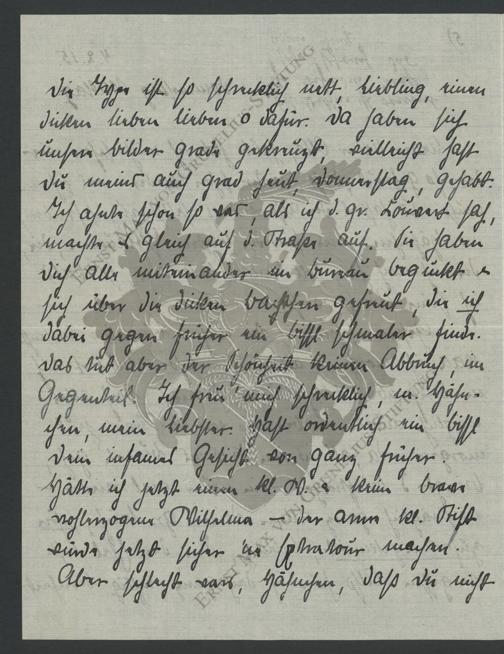 die Type ist so schrecklich nett, Liebling, einen
dicken lieben lieben o dafür. Da haben sich
unsere bilder grade gekreuzt, vielleicht hast
du meins auch grad heut, Donnerstag, gehabt.
Ich ahnte schon so was, als ich d. gr. Couvert sah,
machte es gleich auf d. Straße auf. Sie haben
dich alle miteinander im bureau beguckt &
sich über die dicken backchen gefreut, die ich
dabei gegen früher ein bissl schmaler finde.
das tut aber der Schönheit keinen Abbruch, im
Gegenteil. Ich freu mich schrecklich, m. Hähn-
chen, mein liebster. Hast ordentlich ein bissl
dein infames Gesicht von ganz früher.
Hätte ich jetzt einen kl. W. & keine brave
wohlerzogene Wilhelma — der arme kl. Stift
würde jetzt sicher 'ne Extratour machen.
Aber schlecht wars, Hähnchen, daß du nicht
ERNST MAX VON GRUNELIUS-STIFTUNG